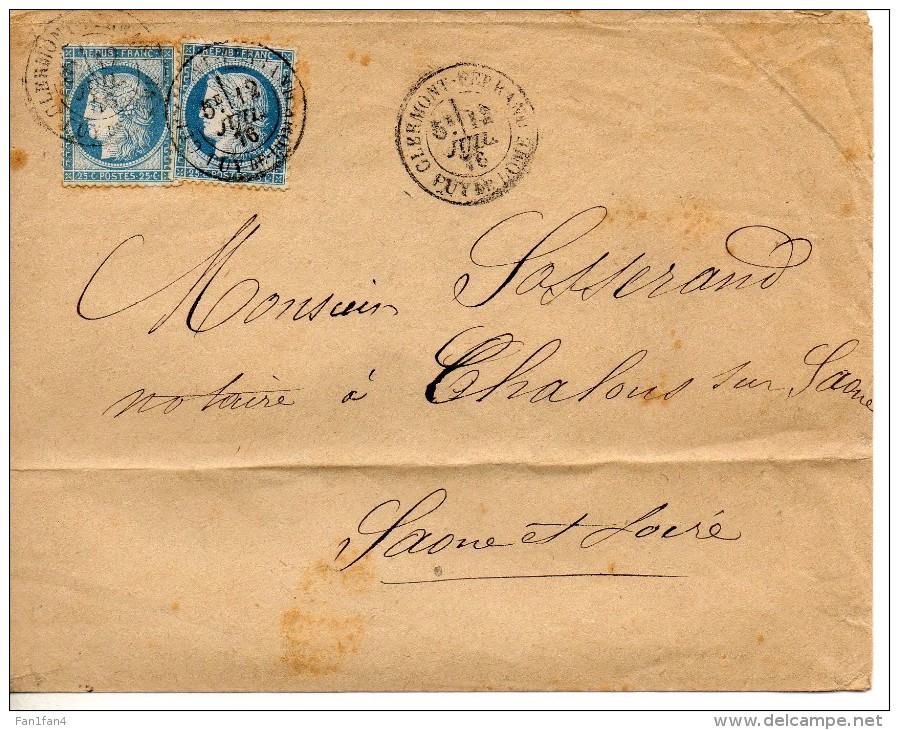 REPUB·FRANC
25·C·POSTES·25·C
REPUB·FRANC
CLERMONT-FERRAND
5E 12
JUIL
76
PUY DE DOME
CLERMONT-FERRAND
5E 12
JUIL
76
PUY DE DOME
Monsieur Josserand
notaire à Chalons sur Saone
Saone et Loire
Fan1fan4
www.delcampe.net